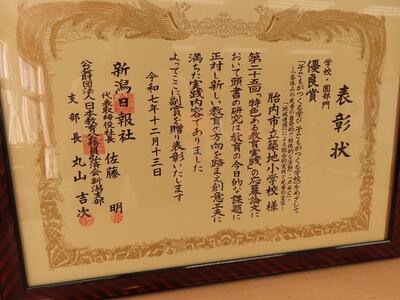 表彰状
学校・園部門
優良賞
「子どもがつくる学び 子どもがつくる学校」をめざして
胎内市立築地小学校 様
第二十五回「特色ある教育実践」の応募論文に
おいて頭書の研究は教育の今日的な課題に
正対し新しい教育の方向を踏まえ創意工夫に
満ちた実践内容でありました
よってここに副賞を贈り表彰いたします
令和七年十二月十三日
新潟日報社
代表取締役社長 佐藤 明
公益財団法人日本教育公務員弘済会新潟支部
支部長 丸山 吉次